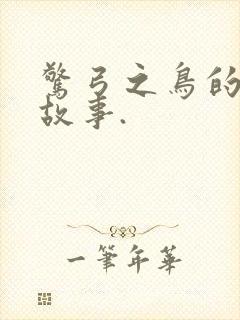 驚弓之鳥的
故事.
一筆年華